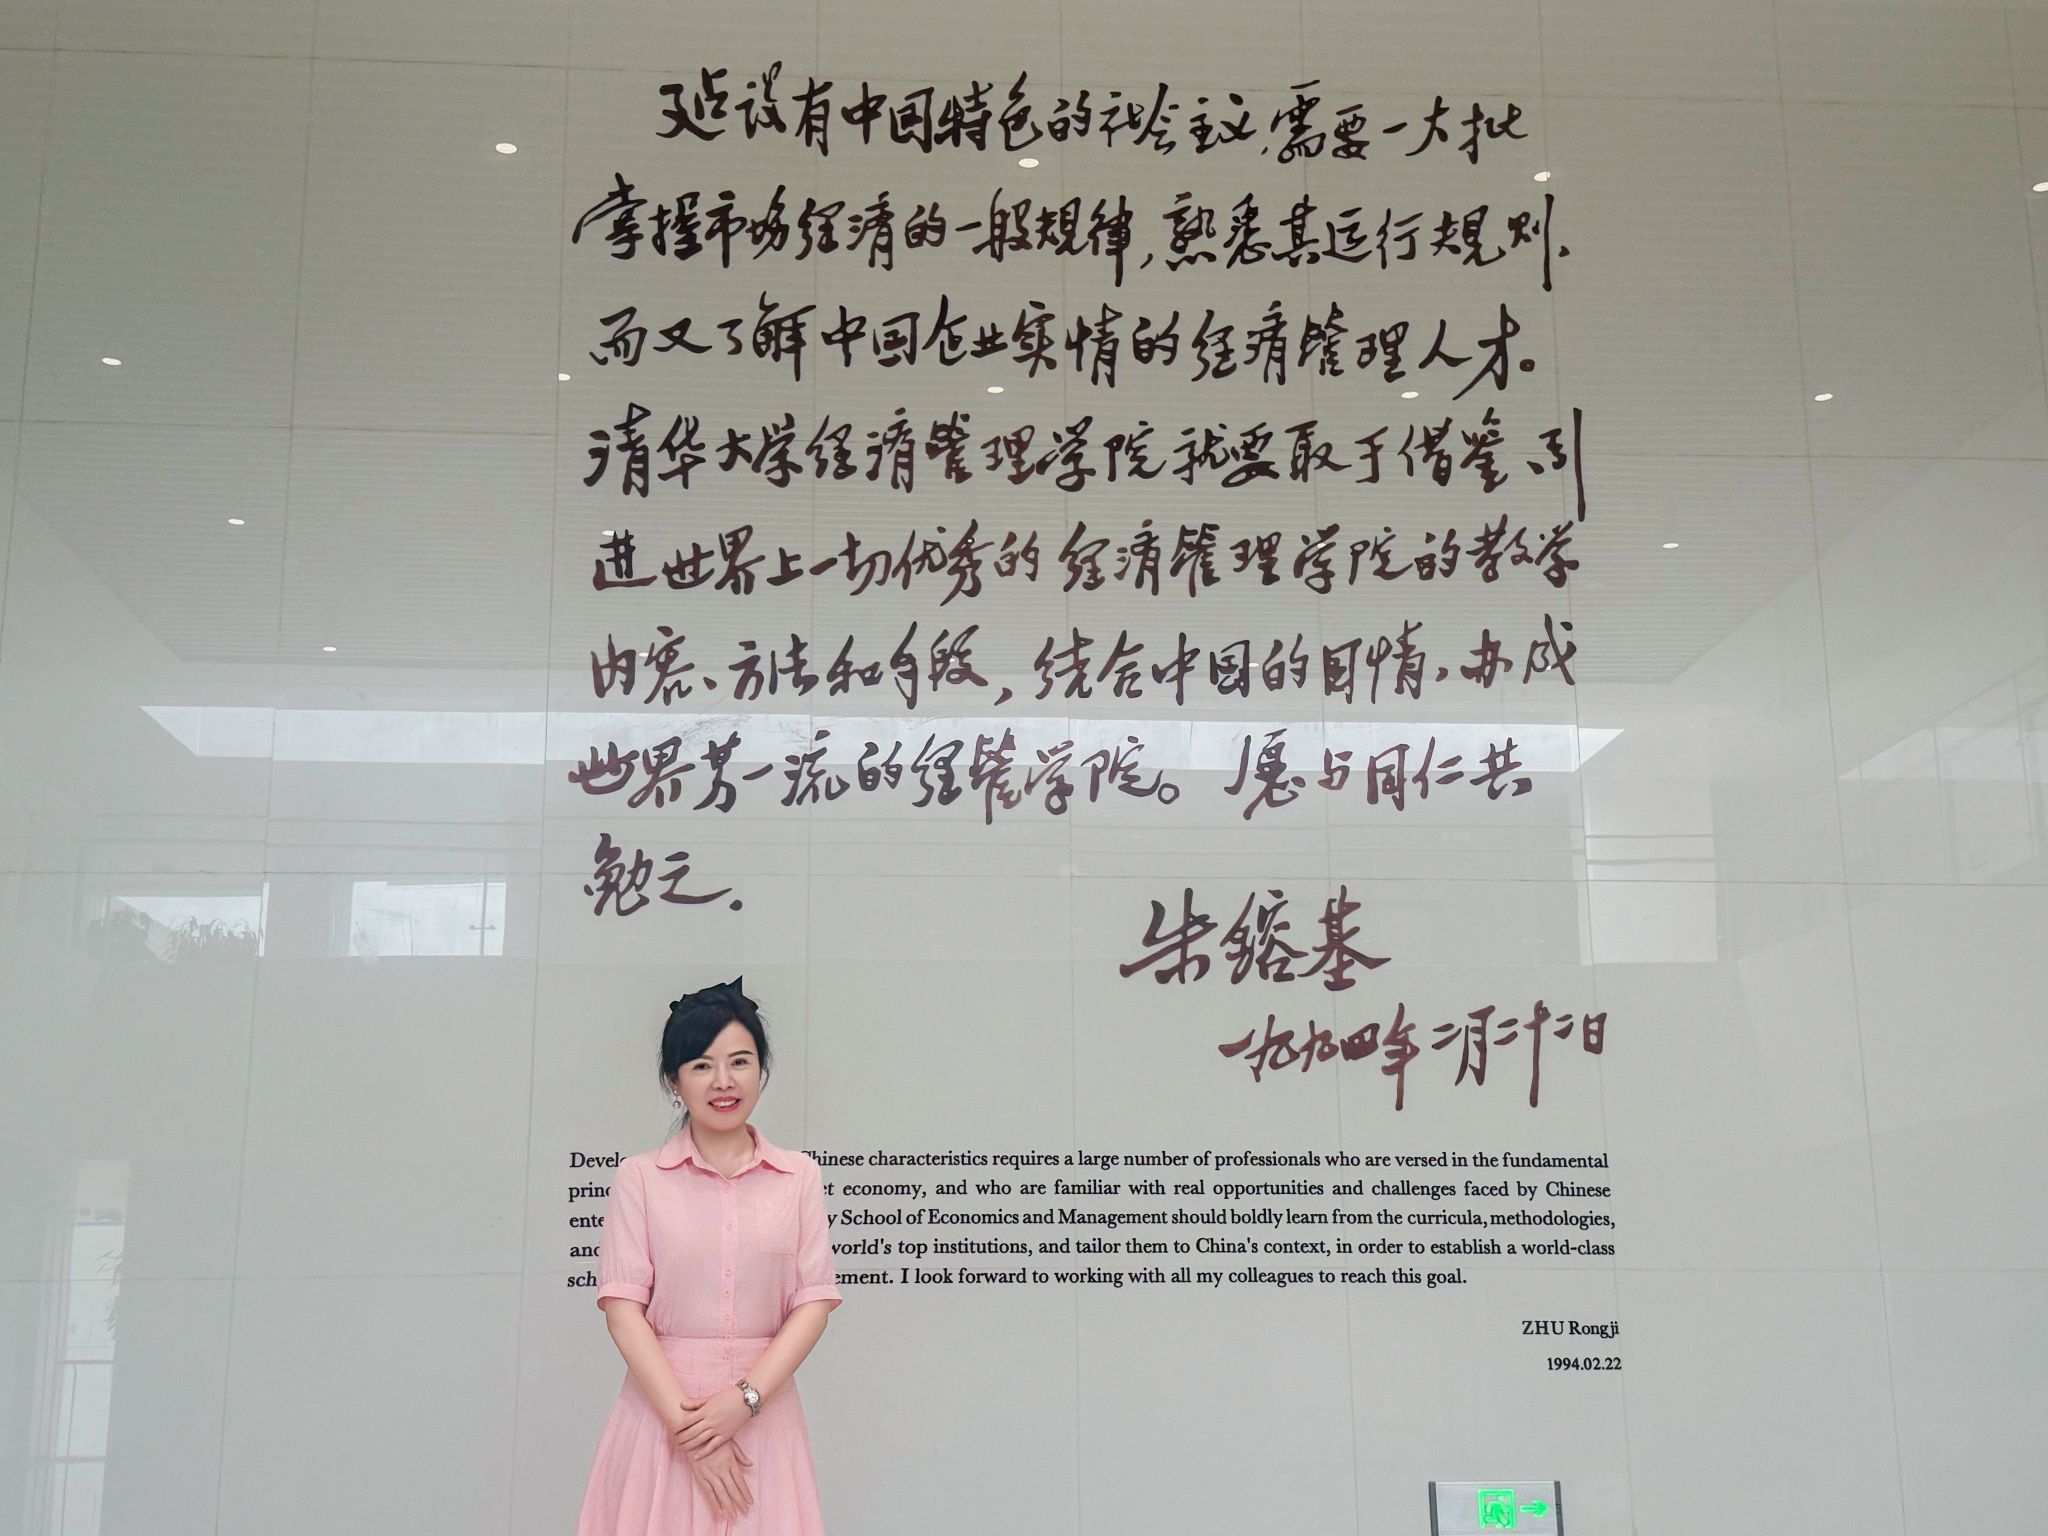 建设有中国特色的社会主义，需要一大批
掌握市场经济的一般规律，熟悉其运行规则、
而又了解中国企业实情的经济管理人才。
清华大学经济管理学院就要敢于借鉴、引
进世界上一切优秀的经济管理学院的教学
内容、方法和手段，结合中国的国情，办成
世界第一流的经管学院。愿与同仁共
勉之。
朱镕基
一九九四年二月二十二日
Chinese characteristics requires a large number of professionals who are versed in the fundamental
economy, and who are familiar with real opportunities and challenges faced by Chinese
School of Economics and Management should boldly learn from the curricula, methodologies,
and world's top institutions, and tailor them to China's context, in order to establish a world-class
I look forward to working with all my colleagues to reach this goal.
ZHU Rongji
1994.02.22